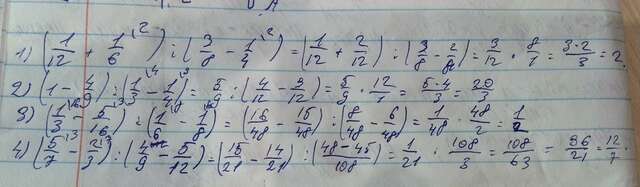 1) (1/12 + 1/6^2) : (3/8 - 1/4^2) = (1/12 + 2/12) : (3/8 - 2/8) = 3/12 · 8/1 = 3·2/3 = 2.
2) (1 - 4/9) : (1/3^4 - 1/4^3) = 5/9 : (4/12 - 3/12) = 5/9 · 12/1 = 5·4/3 = 20/3
3) (1/3^16 - 5/16^3) : (1/6^8 - 1/8^6) = (16/48 - 15/48) : (8/48 - 6/48) = 1/48 · 48/2 = 1/2
4) (5/7^3 - 2/3^7) : (4/9 - 5/12) = (15/21 - 14/21) : (48-45/108) = 1/21 · 108/3 = 108/63 = 36/21 = 12/7.